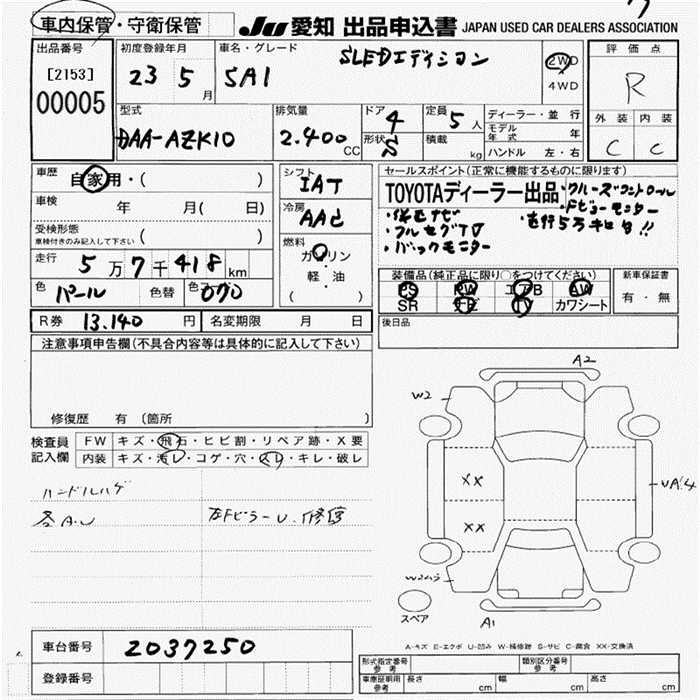 車内保管・守衛保管 JU 愛知 出品申込書 JAPAN USED CAR DEALERS ASSOCIATION
出品番号 初度登録年月 車名・グレード 評価点
[2153] 23 5月 SAI SLEDエディション 2WD R
00005 4WD
型式 排気量 ドア 4 定員 5人 ディーラー・並行 外装 内装
DAA-AZK10 2.400 CC 形状 積載 kg モデル年式 年 C C
ハンドル 左・右
車歴 自家用・( ) シフト IAT セールスポイント(正常に機能するものに限ります)
車検 年 月( 日) 冷房 AAC TOYOTAディーラー出品・クルーズコントロール
・純正ナビ ・Fビューモニター
受検形態 ・フルセグTV ・走行5万キロ台!!
車検付きのみ記入して下さい ( ) 燃料 ガソリン ・バックモニター
走行 5万7千418km 軽・油
( )
色 パール 色替 色コード 070 装備品(純正品に限り○をつけてください) 新車保証書
PS PW エアB AW 有・無
SR ナビ TV カワシート
R券 13.140円 名変期限 月 日 後日品
注意事項申告欄(不具合内容等は具体的に記入して下さい)
修復歴 有 (箇所 )
検査員記入欄 FW キズ・飛石・ヒビ割・リペア跡・X要
内装 キズ・汚レ・コゲ・穴・スレ・キレ・破レ
ハンドルハゲ
各A.U 左FピラーU.修復
A2
W2
XX
UA4
XX
スペア
A1
A-キズ E-エクボ U-凹み W-補修跡 S-サビ C-腐食 XX-交換済
車台番号 2037250
登録番号
形式指定番号 参考 類別区分番号 参考
車庫証明用 参考 長さ cm 幅 cm 高さ cm